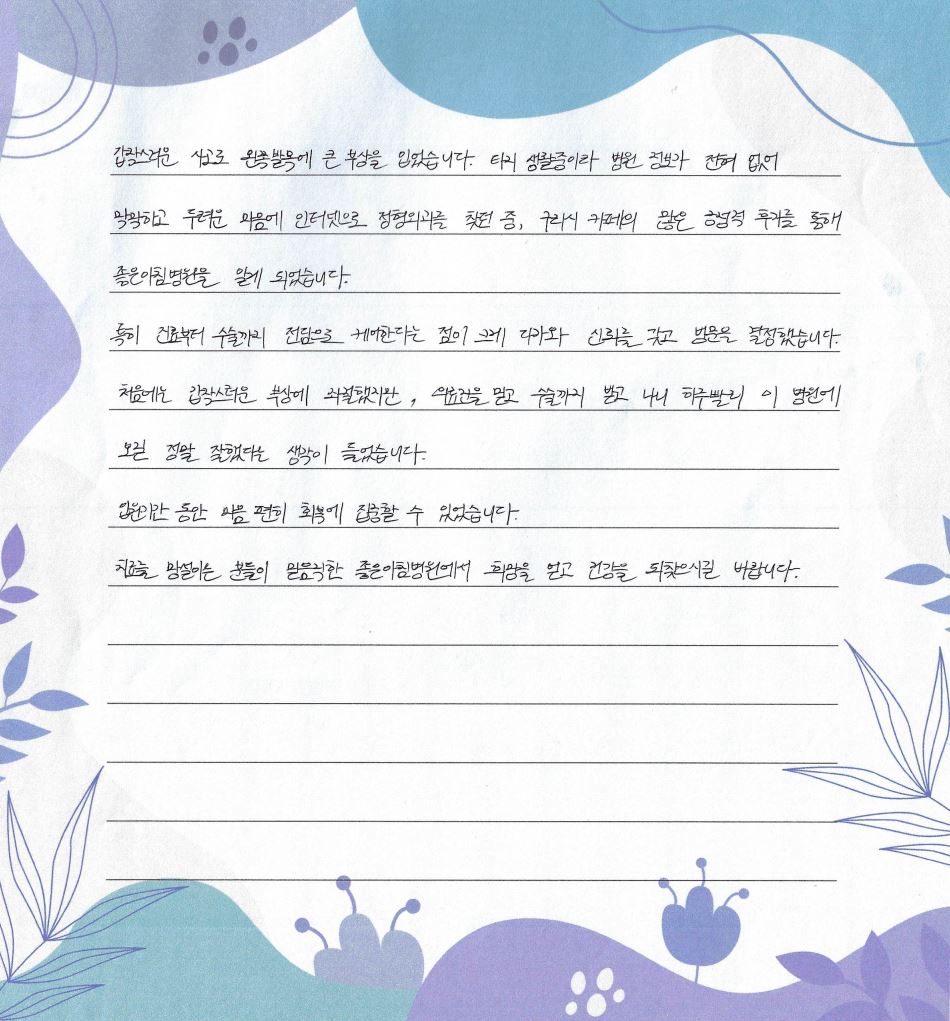 갑작스러운 사고로 왼쪽발목에 큰 부상을 입었습니다. 타지 생활중이라 병원 정보가 전혀 없어
막막하고 두려운 마음에 인터넷으로 정형외과를 찾던 중, 구리시 카페의 많은 호평적 후기를 통해
좋은아침병원을 알게 되었습니다.
특히 진료부터 수술까지 전담으로 케어한다는 점이 크게 다가와 신뢰를 갖고 방문을 결정했습니다.
처음에는 갑작스러운 부상에 좌절했지만, 의료진을 믿고 수술까지 받고 나니 하루빨리 이 병원에
오길 정말 잘했다는 생각이 들었습니다.
입원기간 동안 마음 편히 회복에 집중할 수 있었습니다.
치료를 망설이는 분들이 믿음직한 좋은아침병원에서 희망을 얻고 건강을 되찾으시길 바랍니다.